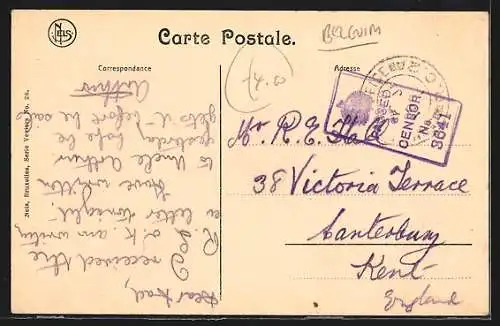 BELGUIM
Carte Postale.
NELS
Correspondance
Adresse
Dear Dad,
received the
O.K. am writing
a letter tonight.
Have written
to Uncle Arthur
yesterday hope he
gets it before he
Arthur
PASSED
BY
CENSOR
No.
3641
Mr R. E.
38 Victoria Terrace
Canterbury
Kent
England
Nels, Bruxelles, Serie